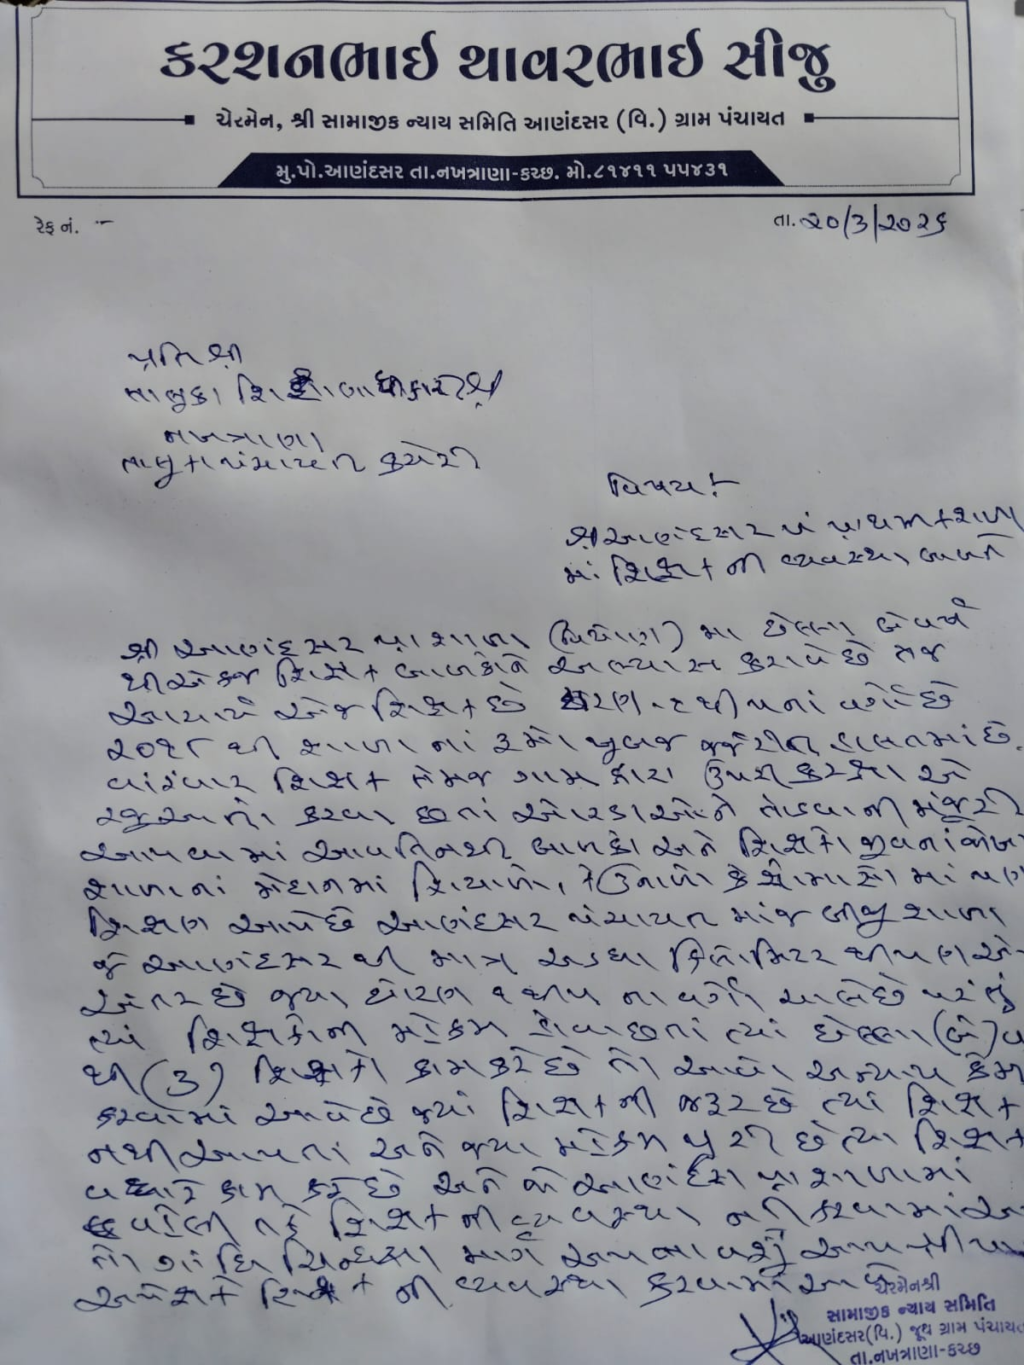 કરશનભાઈ થાવરભાઈ સીજુ
ચેરમેન, શ્રી સામાજીક ન્યાય સમિતિ આણંદસર (વિ.) ગ્રામ પંચાયત
મુ.પો.આણંદસર તા.નખત્રાણા-કચ્છ. મો.૮૧૪૧૧ ૫૫૪૩૧
રેફ નં. -
તા. ૨૦/3/૨૦૨૬
પ્રતિ શ્રી
તાલુકા શિક્ષણાધીકારી શ્રી
નખત્રાણા
તાલુકા પંચાયતની કચેરી
વિષય :-
શ્રી આણંદસર પં પ્રાથમિક શાળા
માં શિક્ષક ની વ્યવસ્થા બાબતે
શ્રી આણંદસર પ્રા શાળા (વિથોણ) મા છેલ્લા બે વર્ષ
થી એકજ શિક્ષક બાળકોને અભ્યાસ કરાવે છે તેજ
આચાર્ય એજ શિક્ષક છે ધોરણ ૧ થી ૫ નાં વર્ગો છે
૨૦૧૮ થી શાળા નાં રૂમો ખુબજ જર્જરીત હાલતમાં છે.
વારંવાર શિક્ષક તેમજ ગામ દ્વારા ઉપલી કક્ષા એ
રજુઆતો કરવા છતાં એ ઓરડાઓને તોડવાની મંજૂરી
આપવામાં આવતિ નથી બાળકો અને શિક્ષકો જીવનાં જોખ
શાળાનાં મેદાનમાં શિયાળો, કે ઉનાળો કે ચોમાસો માં પણ
શિક્ષણ આપે છે આણંદસર પંચાયત માંજ બીજી શાળા
જે આણંદસર થી માત્ર અડધા કિલોમિટર થી પણ ઓ
અંતર છે જ્યા ધોરણ ૧ થી ૫ ના વર્ગો ચાલે છે પરંતુ
ત્યાં શિક્ષકોની મહેકમ હોવા છતાં ત્યાં છેલ્લા (બે) વ
થી (3) શિક્ષકો કામ કરે છે તો આવો અન્યાય કેમ
કરવામાં આવે છે જ્યાં શિક્ષક ની જરૂર છે ત્યાં શિક્ષક
નથી આપતાં અને જ્યા મહેકમ પુરી છે ત્યા શિક્ષક
વધારે કામ કરે છે અને જો આણંદસર પ્રા શાળામાં
વહેલી તકે શિક્ષક ની વ્યવસ્થા નહી કરવામાં આ
તો ગાંધિ ચિંધ્યા માર્ગે
શિક્ષક ની વ્યવસ્થા કરવામાં આવે
ચેરમેનશ્રી
સામાજીક ન્યાય સમિતિ
આણંદસર(વિ.) જૂથ ગ્રામ પંચાયત
તા.નખત્રાણા-કચ્છ